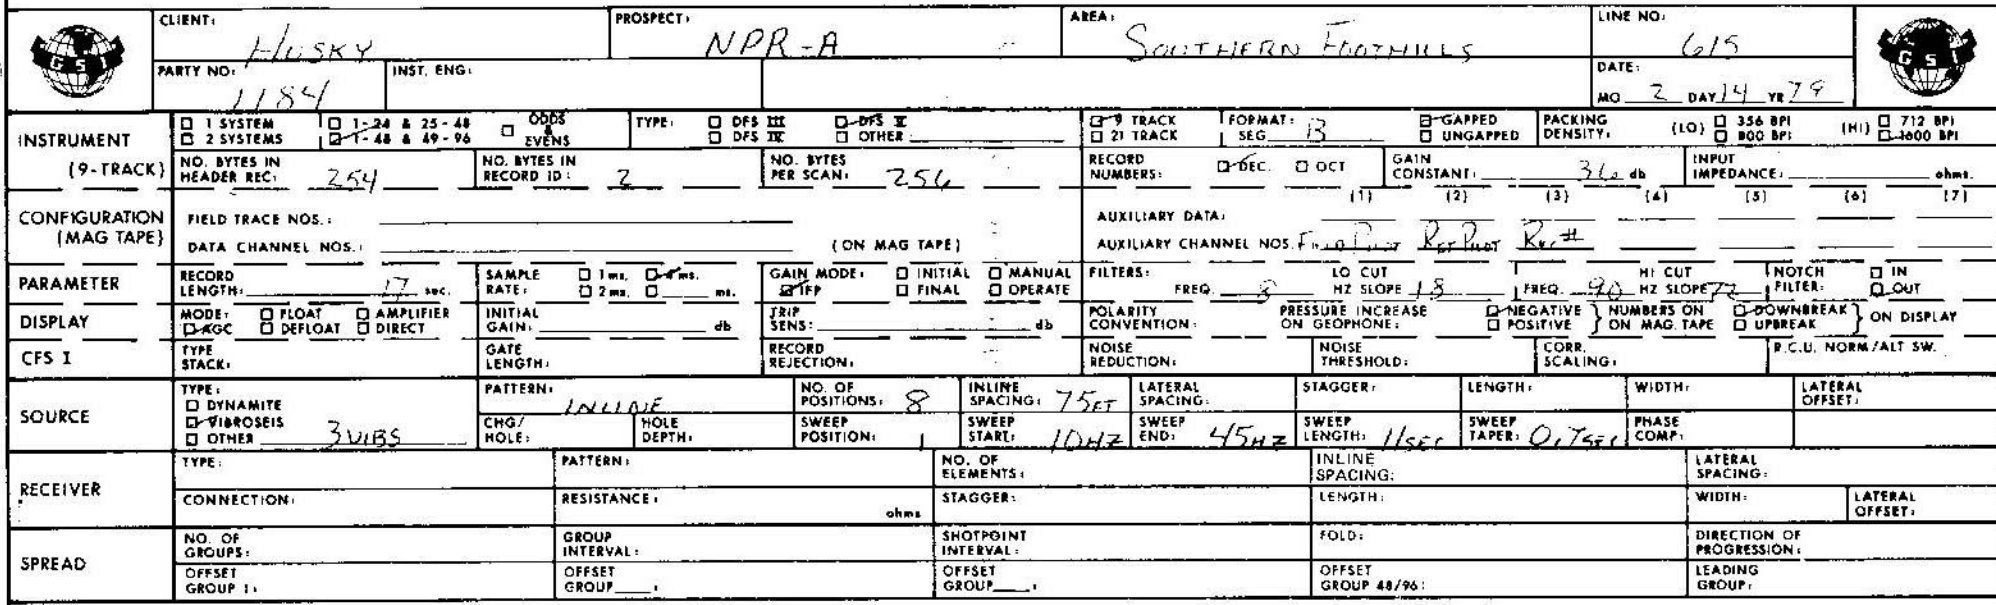 CLIENT: HUSKY PROSPECT: NPR-A AREA: SOUTHERN FOOTHILLS LINE NO: 615
GSI GSI
PARTY NO: 1184 INST. ENG: DATE: MO 2 DAY 14 YR 79
INSTRUMENT (9-TRACK)
1 SYSTEM 1-24 & 25-48 ODDS & EVENS TYPE: DFS III DFS V 9 TRACK FORMAT: SEG B GAPPED PACKING DENSITY: (LO) 356 BPI (HI) 712 BPI
2 SYSTEMS 1-48 & 49-96 DFS IV OTHER 21 TRACK UNGAPPED 800 BPI 1600 BPI
NO. BYTES IN HEADER REC: 254 NO. BYTES IN RECORD ID: 2 NO. BYTES PER SCAN: 256 RECORD NUMBERS: DEC. OCT GAIN CONSTANT: 36 db INPUT IMPEDANCE: ohms.
CONFIGURATION (MAG TAPE)
(1) (2) (3) (4) (5) (6) (7)
FIELD TRACE NOS.: AUXILIARY DATA:
DATA CHANNEL NOS.: (ON MAG TAPE) AUXILIARY CHANNEL NOS. FIELD PILOT REF PILOT
PARAMETER RECORD LENGTH: 17 sec. SAMPLE RATE: 1 ms. 4 ms. 2 ms. ms. GAIN MODE: INITIAL MANUAL IFP FINAL OPERATE FILTERS: FREQ. 8 LO CUT HZ SLOPE 18 FREQ. 90 HI CUT HZ SLOPE 72 NOTCH FILTER: IN OUT
DISPLAY MODE: FLOAT AMPLIFIER AGC DEFLOAT DIRECT INITIAL GAIN: db TRIP SENS: db POLARITY CONVENTION: PRESSURE INCREASE ON GEOPHONE: NEGATIVE POSITIVE } NUMBERS ON ON MAG. TAPE DOWNBREAK UPBREAK } ON DISPLAY
CFS I TYPE STACK: GATE LENGTH: RECORD REJECTION: NOISE REDUCTION: NOISE THRESHOLD: CORR. SCALING: R.C.U. NORM/ALT SW.
SOURCE TYPE: DYNAMITE VIBROSEIS OTHER 3 VIBS
PATTERN: INLINE NO. OF POSITIONS: 8 INLINE SPACING: 75 FT LATERAL SPACING: STAGGER: LENGTH: WIDTH: LATERAL OFFSET:
CHG/HOLE: HOLE DEPTH: SWEEP POSITION: 1 SWEEP START: 10 HZ SWEEP END: 45 HZ SWEEP LENGTH: 11 SEC SWEEP TAPER: 0.7 SEC PHASE COMP:
RECEIVER TYPE: PATTERN: NO. OF ELEMENTS: INLINE SPACING: LATERAL SPACING:
CONNECTION: RESISTANCE: ohms STAGGER: LENGTH: WIDTH: LATERAL OFFSET:
SPREAD NO. OF GROUPS: GROUP INTERVAL: SHOTPOINT INTERVAL: FOLD: DIRECTION OF PROGRESSION:
OFFSET GROUP 1: OFFSET GROUP : OFFSET GROUP : OFFSET GROUP 48/96: LEADING GROUP: